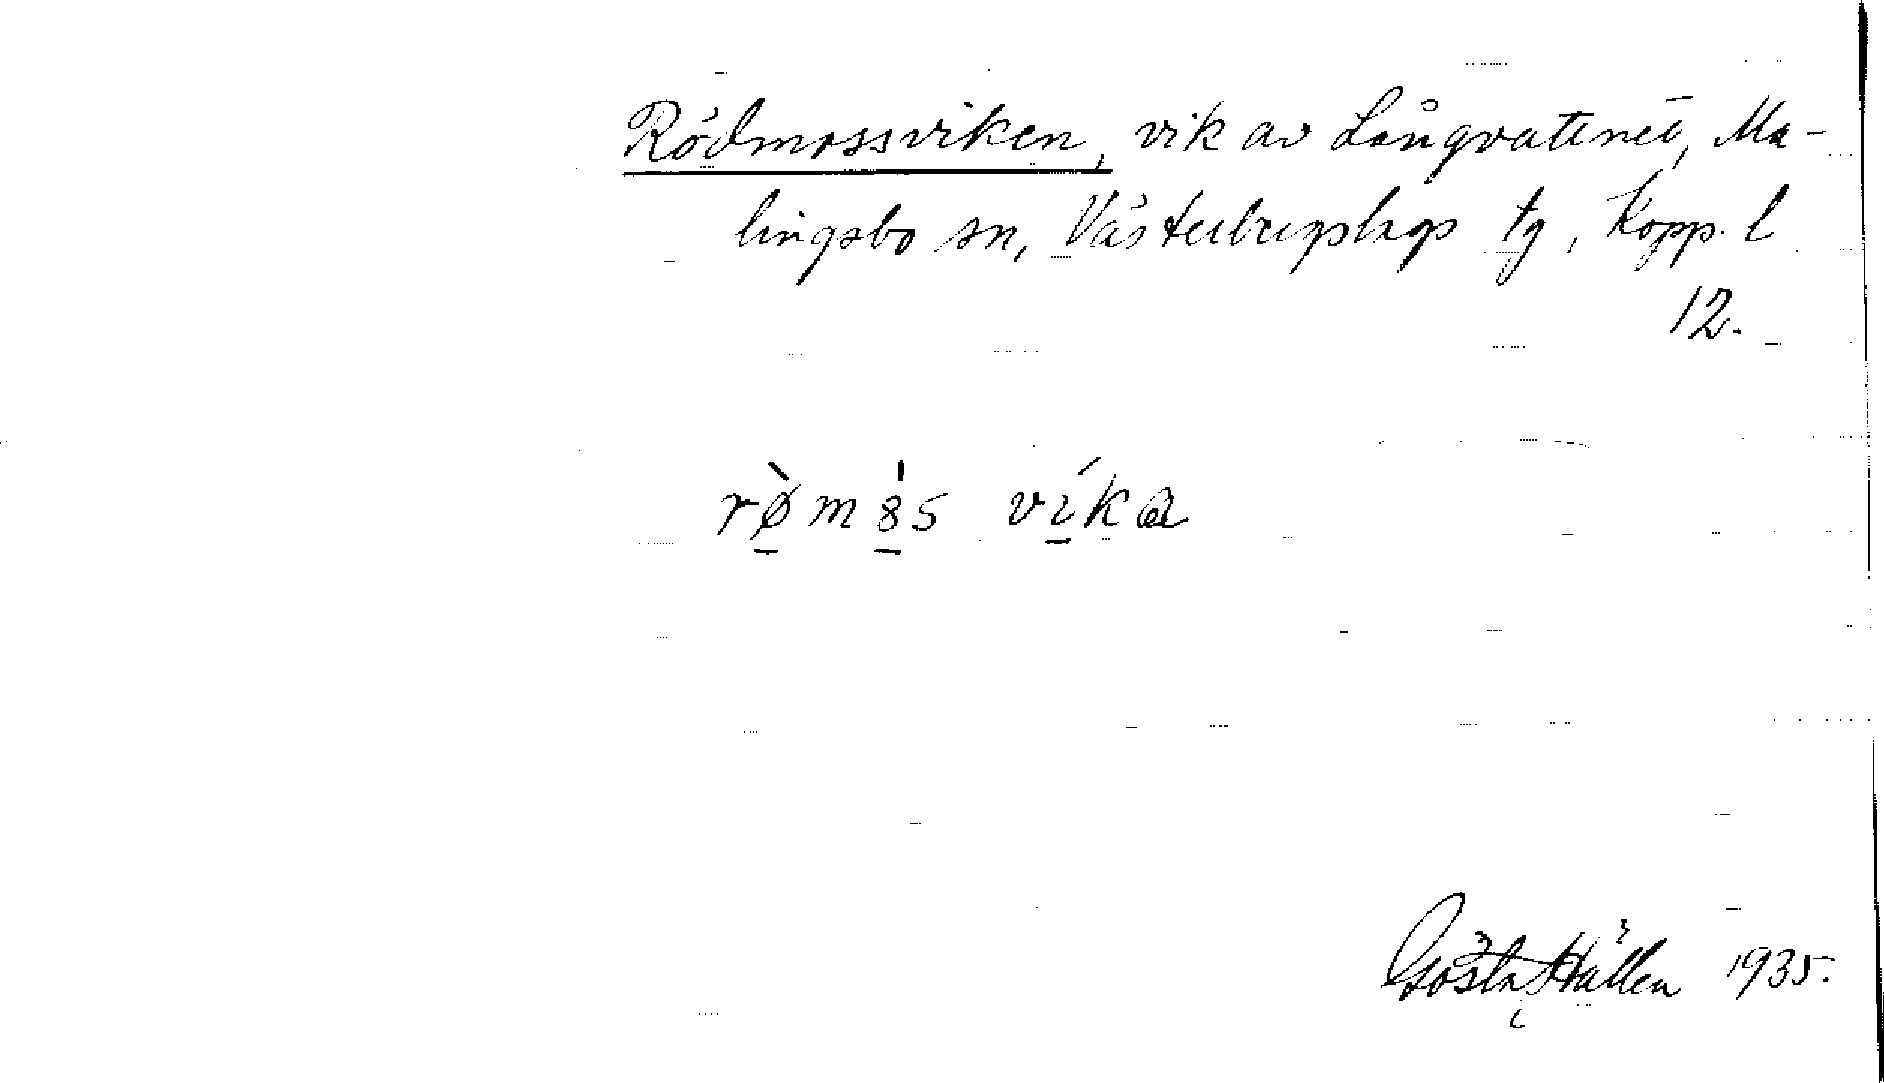 Rödmossviken, vik av Långvattnet, Ma-
lingsbo sn, Västerbergslags tg, Kopp. l
12.
rø̀mȣ̍s víka
Gösta Hållen 1935.